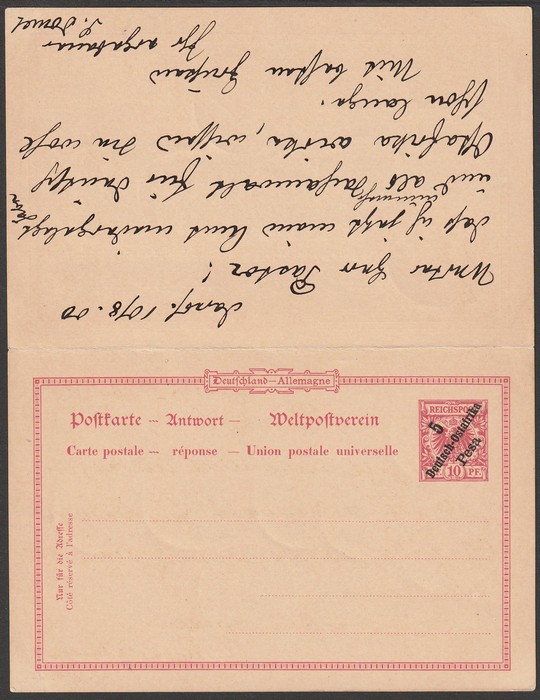 10/8. 00
Werter Herr Pastor!
daß ich jetzt mein Amt niedergelegt habe
und als für Deutsch
Ostafrika wirke, wissen Sie wohl
schon lange.
Mit besten Grüßen
Ihr ergebener
Deutschland—Allemagne
Postkarte — Antwort — Weltpostverein
Carte postale — réponse — Union postale universelle
REICHSPOST
10 PF.
5
Deutsch-Ostafrika
Pesa
Nur für die Adresse
Côté réservé à l'adresse